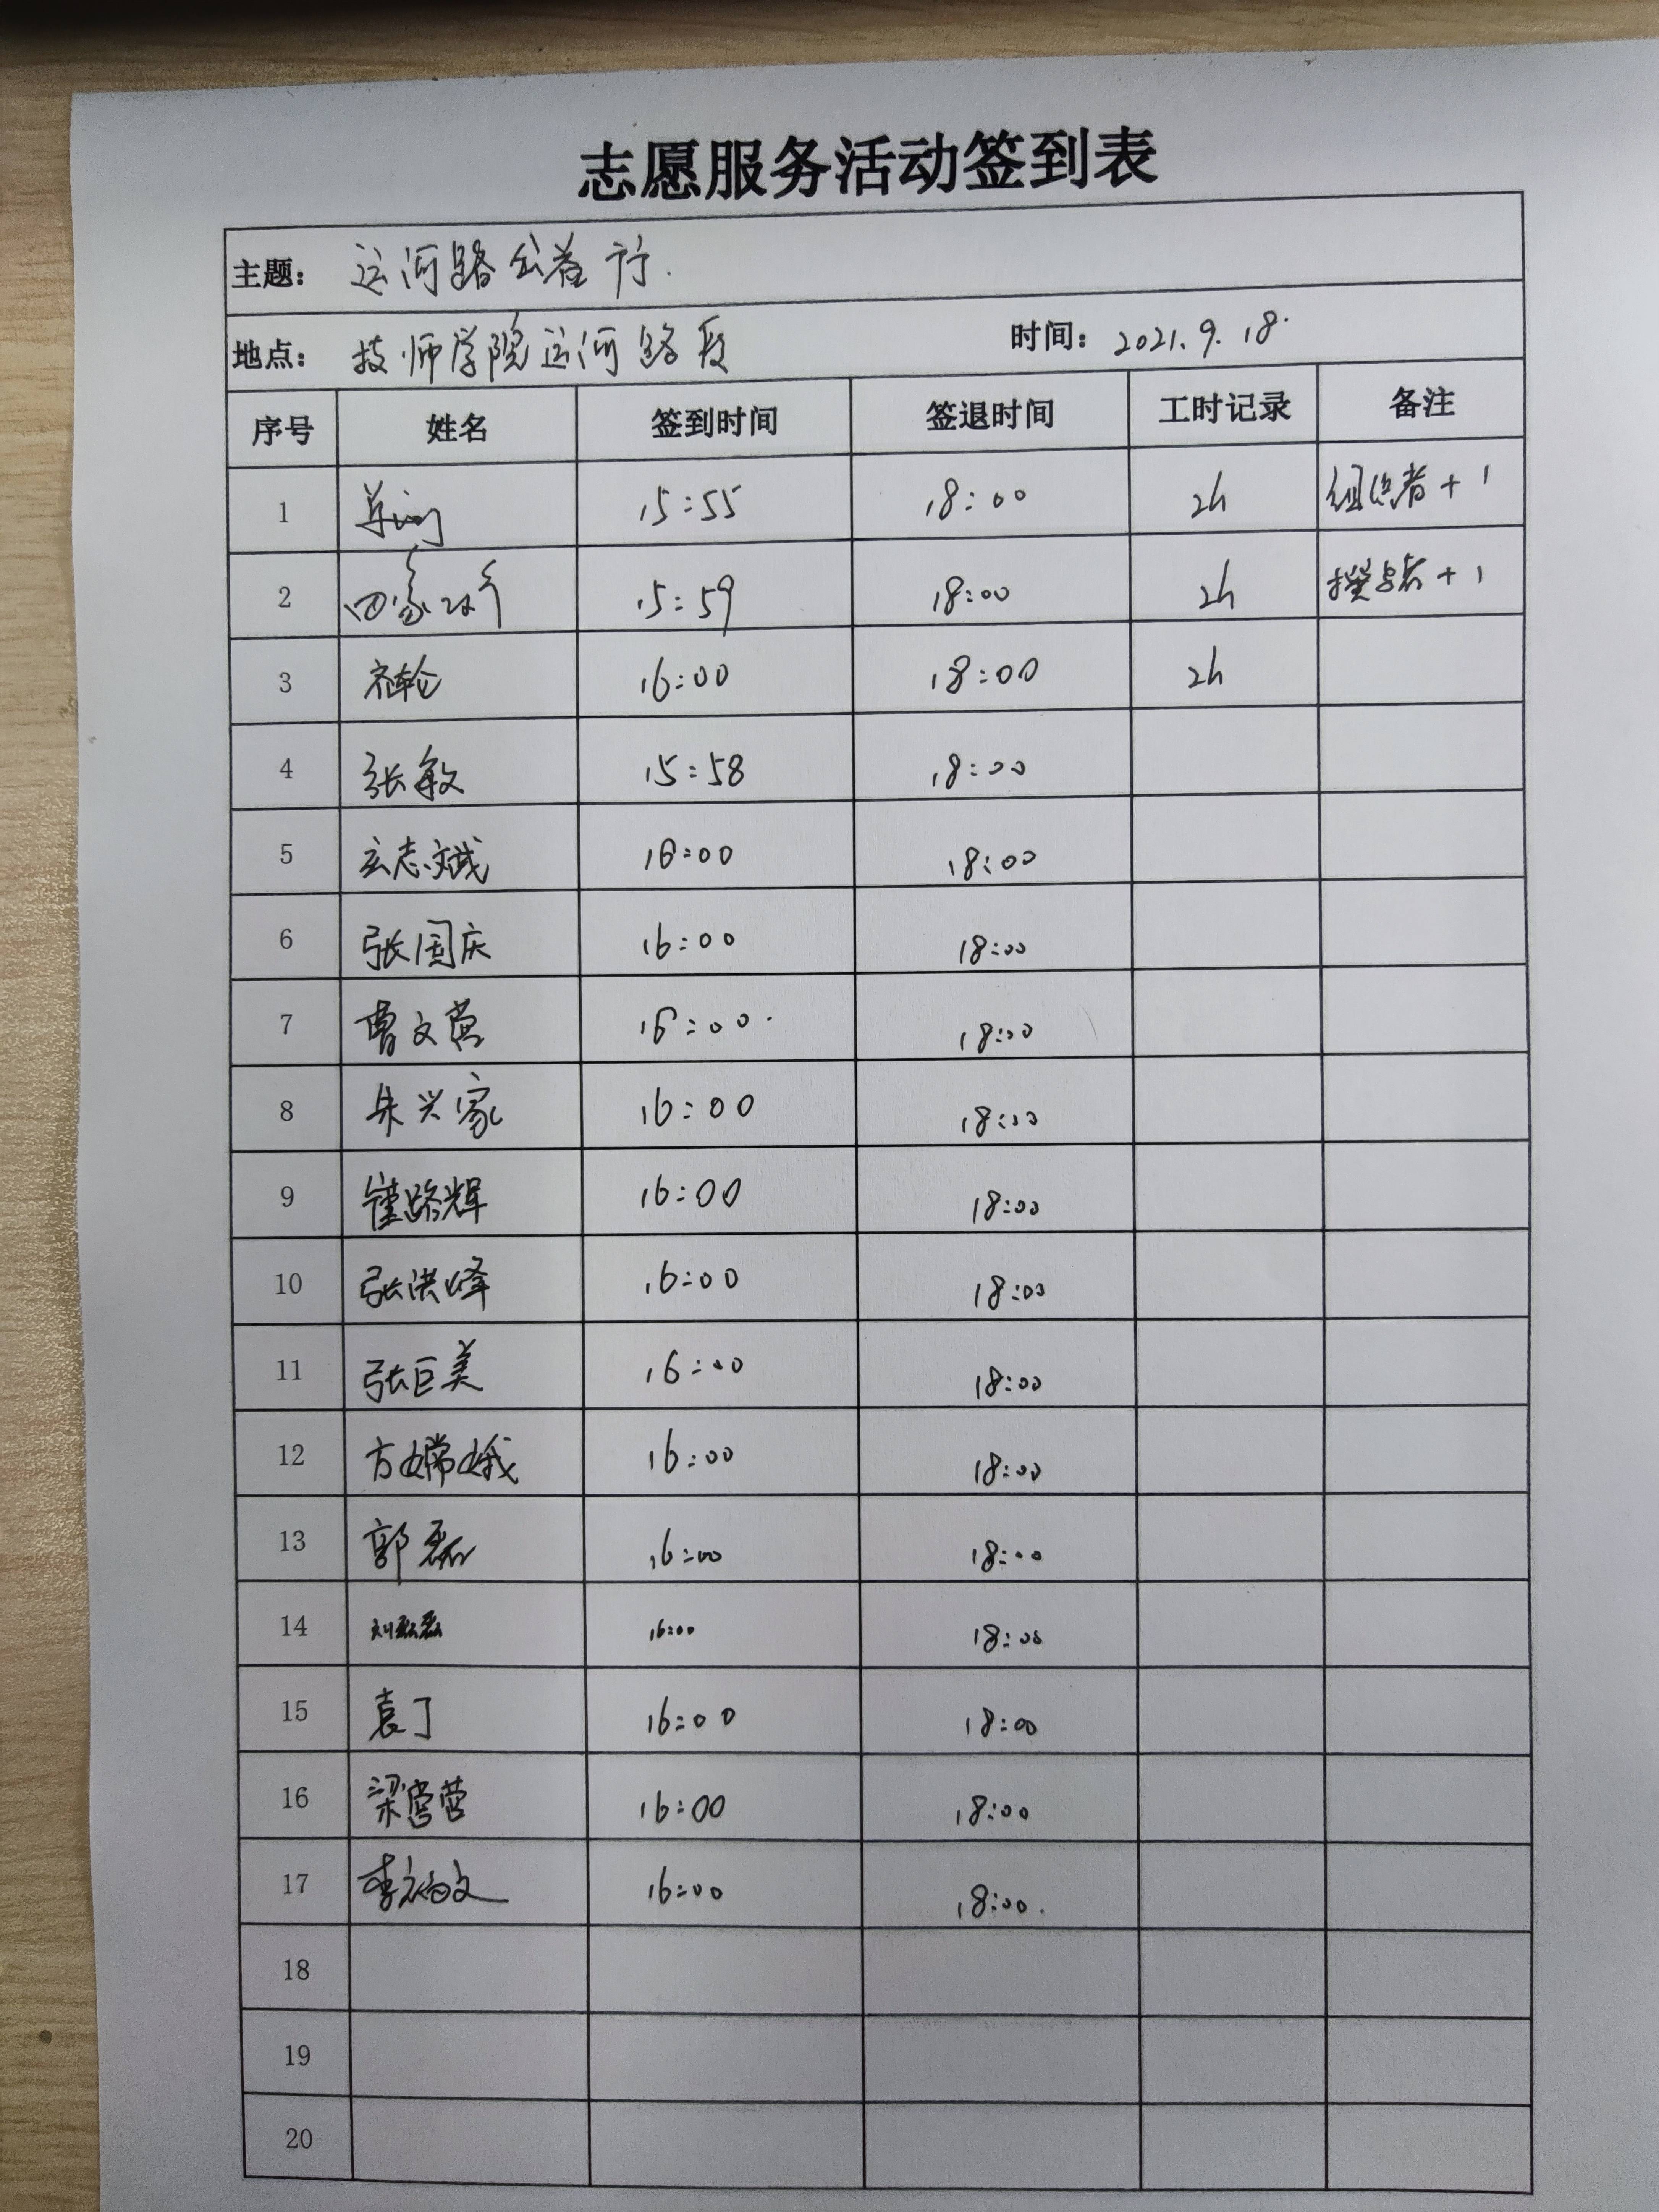 志愿服务活动签到表
主题: 运河路公益行.
地点: 技师学院运河路段 时间: 2021.9.18.
序号 姓名 签到时间 签退时间 工时记录 备注
1 15:55 18:00 2h 组织者+1
2 15:59 18:00 2h +1
3 16:00 18:00 2h
4 张敏 15:58 18:00
5 玄志斌 16:00 18:00
6 张国庆 16:00 18:00
7 曹文营 16:00 18:00
8 朱兴家 16:00 18:00
9 崔路辉 16:00 18:00
10 张洪峰 16:00 18:00
11 张巨美 16:00 18:00
12 方嫦娥 16:00 18:00
13 郭磊 16:00 18:00
14 刘磊磊 16:00 18:00
15 袁丁 16:00 18:00
16 梁营营 16:00 18:00
17 16:00 18:00.
18
19
20